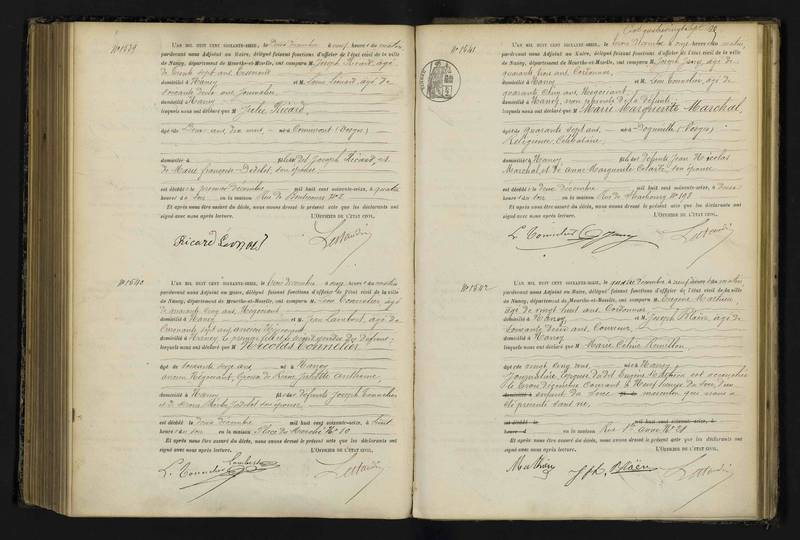 No 1539
L'AN MIL HUIT CENT SOIXANTE-SEIZE, le deux décembre à neuf heures du matin
pardevant nous Adjoint au Maire, délégué faisant fonctions d'officier de l'état civil de la ville
de Nancy, département de Meurthe-et-Moselle, ont comparu M. Joseph Ricard, âgé
de trente sept ans
domicilié à Nancy et M. Léon Léonard, âgé de
ans Journalier,
domicilié à Nancy
lesquels nous ont déclaré que M Julie Ricard,
âgé de deux ans, dix mois, né à (Vosges)
domicilié à fille de dit Joseph Ricard, et
de Marie françoise son épouse
est décédée le premier décembre mil huit cent soixante-seize, à quatre
heures du soir en la maison Rue de No 2
Et après nous être assuré du décès, nous avons dressé le présent acte que les déclarants ont
signé avec nous après lecture. L'OFFICIER DE L'ÉTAT CIVIL,
Ricard Leonard
No 1540
L'AN MIL HUIT CENT SOIXANTE-SEIZE, le trois décembre à onze heures du matin
pardevant nous Adjoint au maire, délégué faisant fonctions d'officier de l'état civil de la ville
de Nancy, département de Meurthe-et-Moselle, ont comparu M. Léon Tonnelier, âgé
de quarante cinq ans, Négociant
domicilié à Nancy et M. Jean Lambert, âgé de
sept ans ancien Négociant
domicilié à Nancy le premier fils et le second gendre du défunt
lesquels nous ont déclaré que M Nicolas Tonnelier
âgé de soixante seize ans né à Nancy
ancien Négociant, époux de Reine Juliette Anthoine,
domicilié à Nancy fils des défunts Joseph Tonnelier
et de son épouse
est décédé le deux décembre mil huit cent soixante-seize, à huit
heures du soir en la maison Place du Marché No 10
Et après nous être assuré du décès, nous avons dressé le présent acte que les déclarants ont
signé avec nous après lecture. L'OFFICIER DE L'ÉTAT CIVIL,
L. Tonnelier Lambert
No 1541
L'AN MIL HUIT CENT SOIXANTE-SEIZE, le trois décembre à onze heures du matin,
pardevant nous Adjoint au Maire, délégué faisant fonctions d'officier de l'état civil de la ville
de Nancy, département de Meurthe-et-Moselle, ont comparu M. Joseph âgé de
quarante trois ans Cordonnier,
domicilié à Nancy et M. Léon Tonnelier, âgé de
quarante cinq ans, Négociant
domicilié à Nancy, non parents de la défunte
lesquels nous ont déclaré que M Marie Marguerite Marchal
âgée de quarante sept ans, né à (Vosges)
Religieuse, Célibataire,
domiciliée à Nancy fille des défunts Jean Nicolas
Marchal, et de Anne Marguerite son épouse
est décédée le deux décembre mil huit cent soixante-seize, à deux
heures du soir en la maison Rue de Strasbourg No 198
Et après nous être assuré du décès, nous avons dressé le présent acte que les déclarants ont
signé avec nous après lecture. L'OFFICIER DE L'ÉTAT CIVIL,
L. Tonnelier
No 1542
L'AN MIL HUIT CENT SOIXANTE-SEIZE, le quatre décembre, à neuf heures du matin,
pardevant nous Adjoint au Maire, délégué faisant fonctions d'officier de l'état civil de la ville
de Nancy, département de Meurthe-et-Moselle, ont comparu M. Eugène Mathieu
âgé de vingt huit ans Cordonnier
domicilié à Nancy et M. Joseph Blaën âgé de
soixante deux ans, Couvreur
domicilié à Nancy
lesquels nous ont déclaré que M Marie Céline
âgée de vingt cinq ans née à Nancy
Journalière, épouse du dit Eugène Mathieu est accouchée
le trois décembre courant à neuf heures du soir d'un
enfant du sexe masculin qui nous a
été présenté sans vie,
en la maison Rue Ste Anne No 28
Et après nous être assuré du décès, nous avons dressé le présent acte que les déclarants ont
signé avec nous après lecture. L'OFFICIER DE L'ÉTAT CIVIL,
Mathieu Jph. Blaën